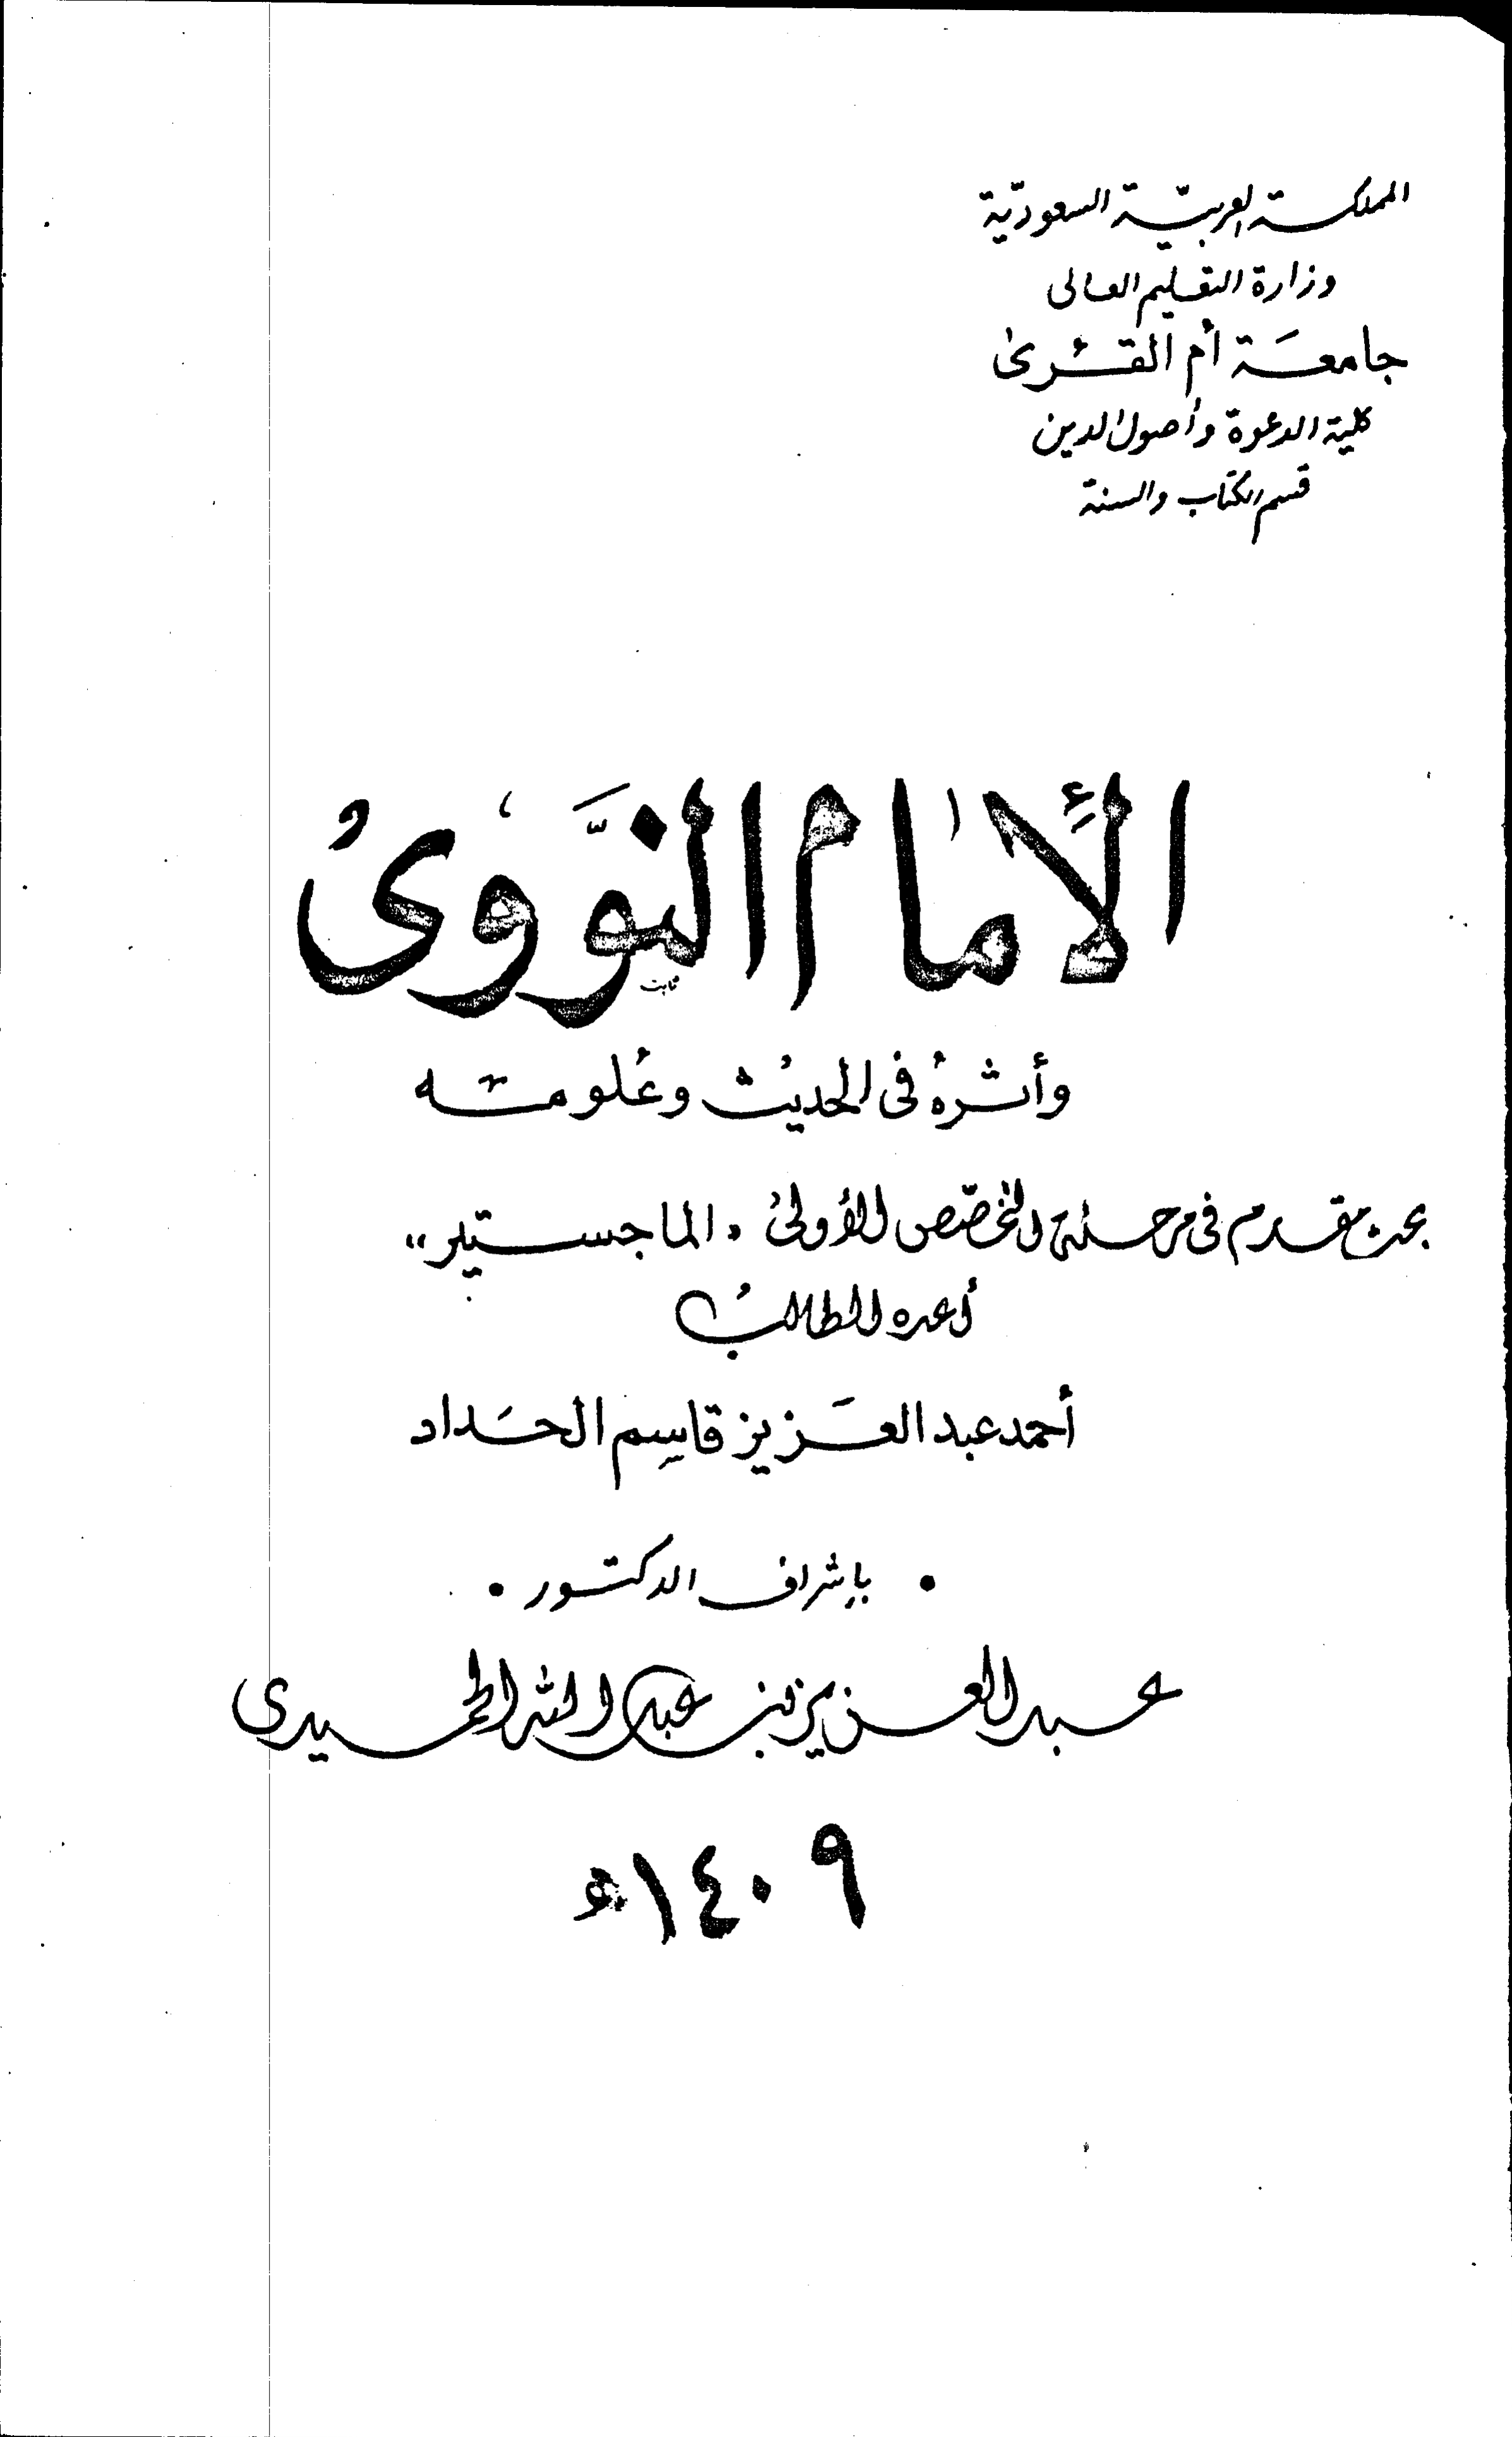 المملكة العربيّة السعوديّة
وزارة التعليم العالى
جامعَة أم القُرىٰ
كلية الدعوة وأصول الدين
قسم الكتاب والسنة
الإمام النَّووى
ثابت
وأثرهُ فى الحديث وعُلومه
بحث مقدم فى مرحلة التخصّص الأولىٰ "الماجستير"
أعده الطالبُ
أحمد عبد العَزيز قاسِم الحَداد
• بإشراف الدكتور •
عبد العزيز بن عبد الله الحميدى
١٤٠٩هـ